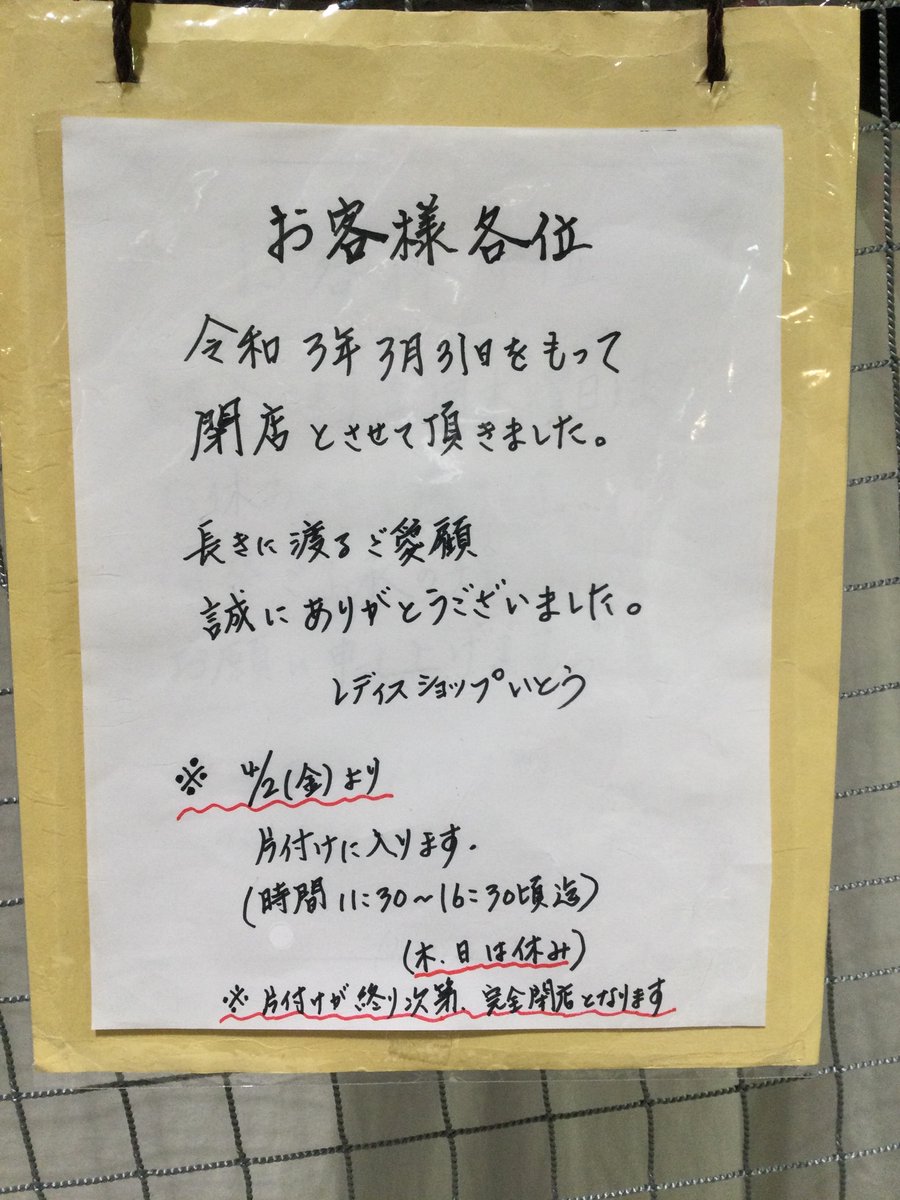 お客様各位
令和3年3月31日をもって
閉店とさせて頂きました。
長きに渡るご愛顧
誠にありがとうございました。
レディスショップいとう
※ 4/2(金)より
片付けに入ります.
(時間11:30〜16:30頃迄)
(木.日は休み)
※片付けが終り次第、完全閉店となります